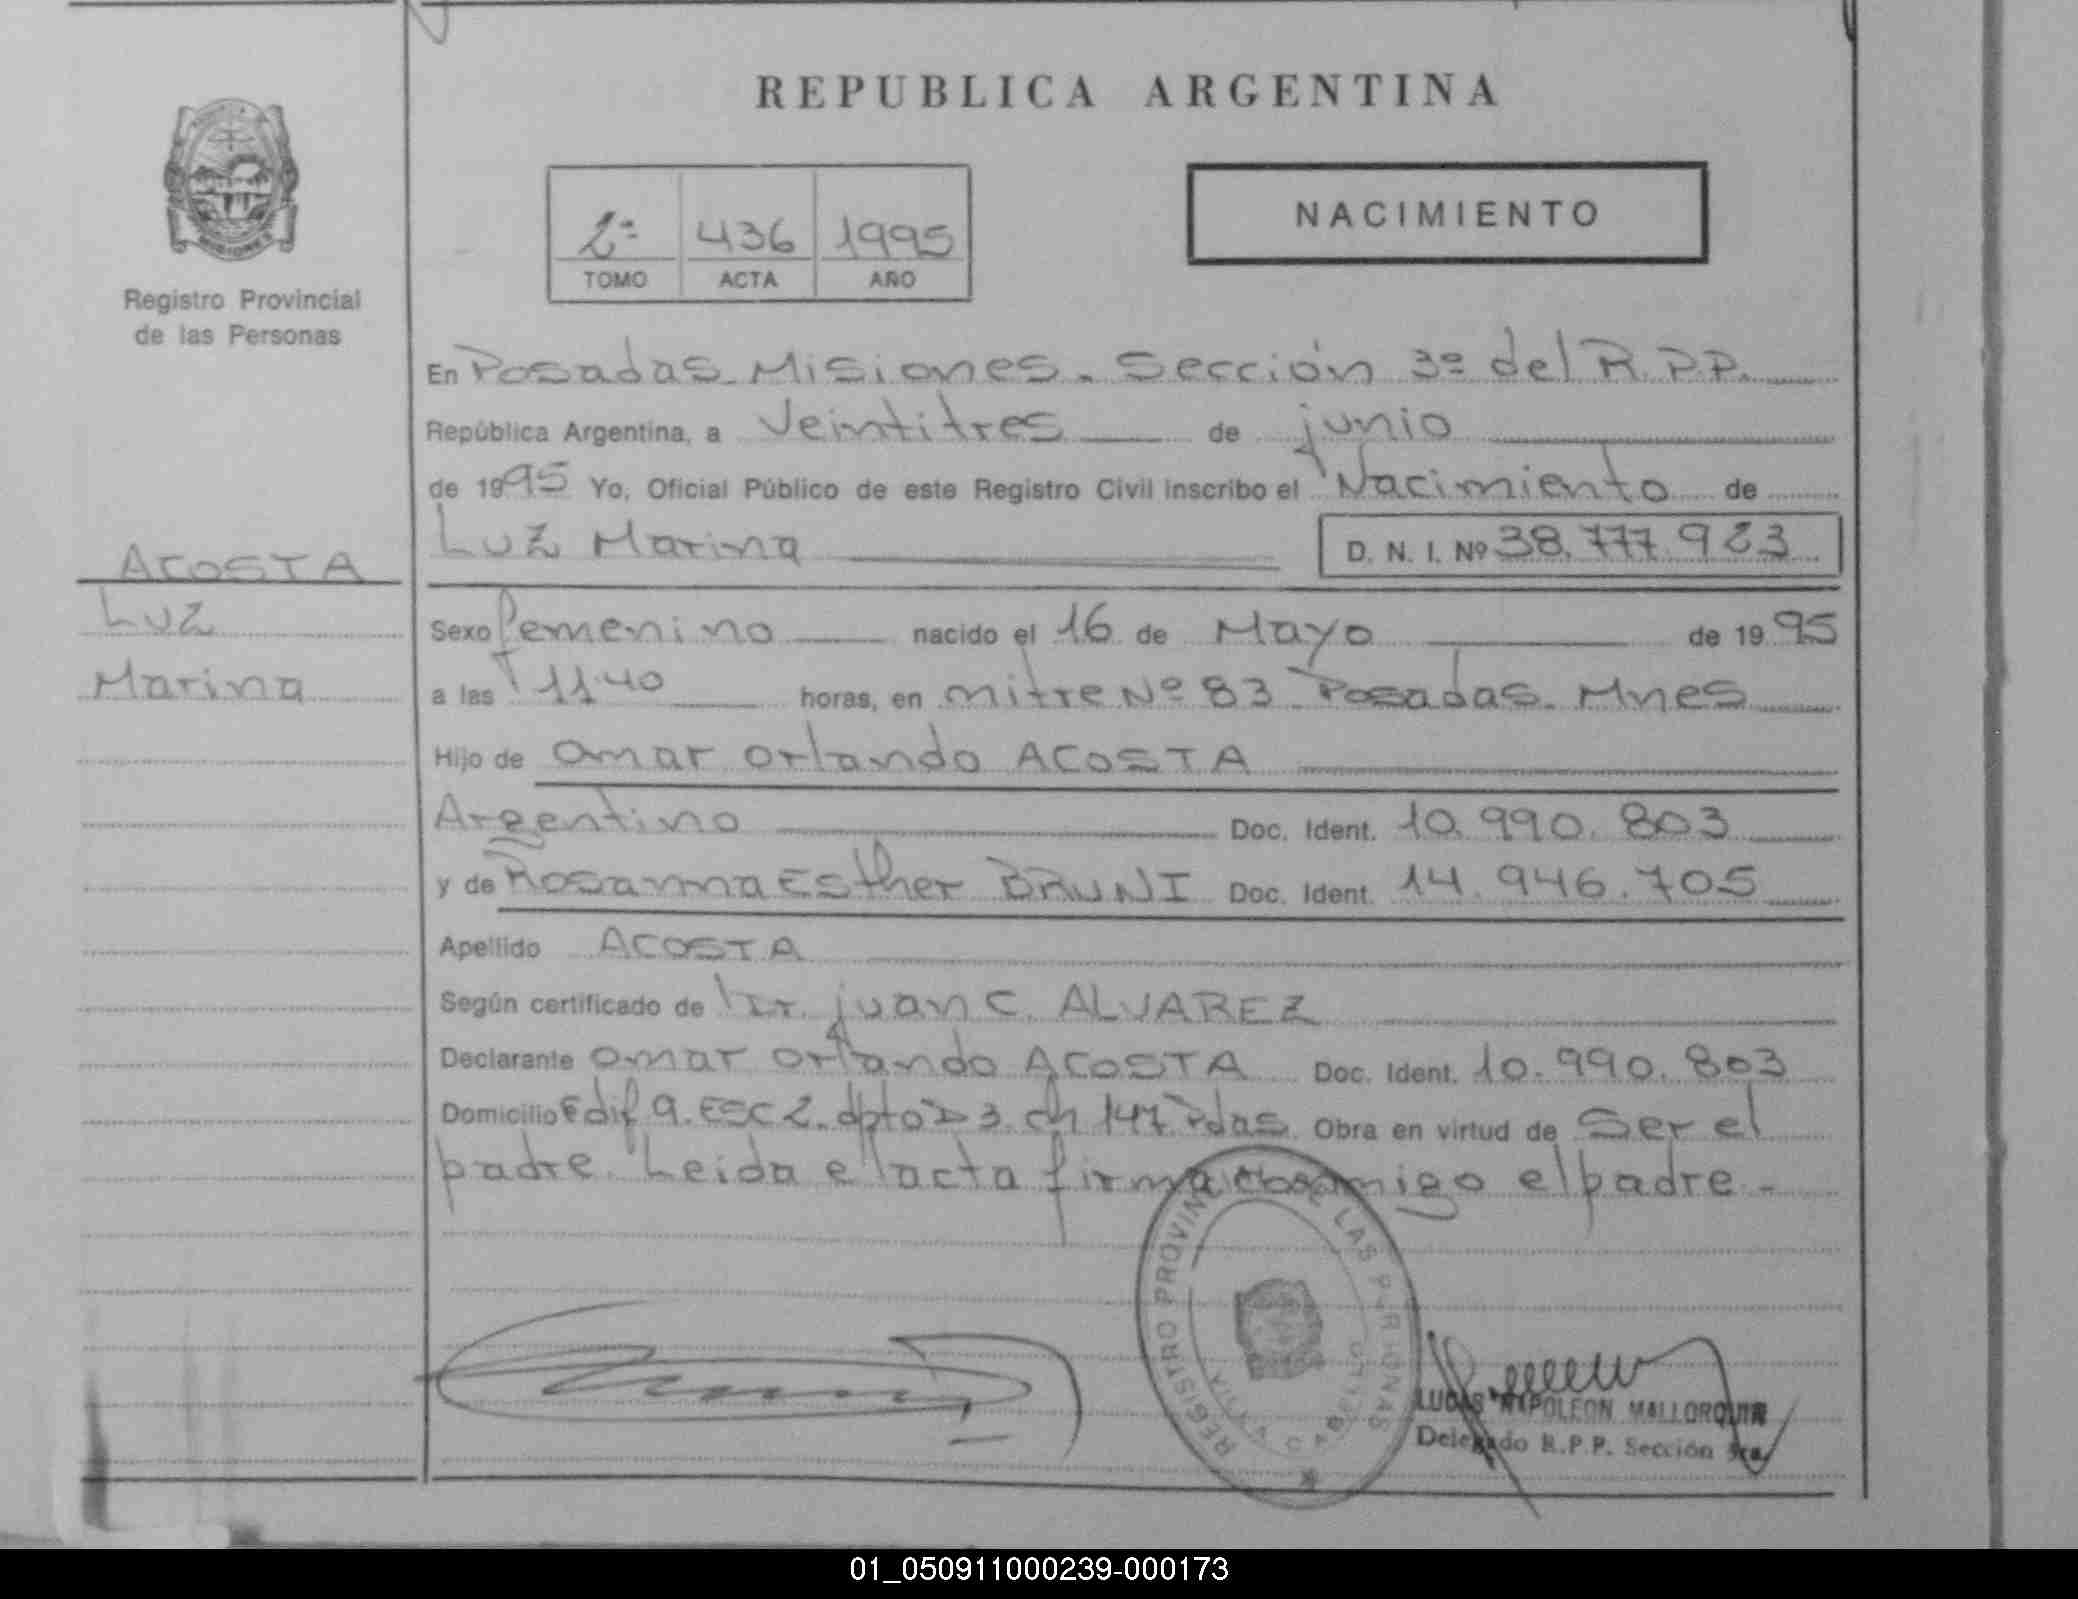 REPUBLICA ARGENTINA
2ª 436 1995
TOMO ACTA AÑO
NACIMIENTO
Registro Provincial
de las Personas
ACOSTA
Luz
Marina
En Posadas Misiones. Sección 3ª del R.P.P.
República Argentina, a veintitres de junio
de 1995 Yo, Oficial Público de este Registro Civil inscribo el Nacimiento de
Luz Marina D. N. I. Nº 38.777.923
Sexo femenino nacido el 16 de Mayo de 1995
a las 11:40 horas, en mitre Nº 83 Posadas. Mnes
Hijo de Omar Orlando ACOSTA
Argentino Doc. Ident. 10.990.803
y de Rosanna Esther BRUNI Doc. Ident. 14.946.705
Apellido ACOSTA
Según certificado de Dr. Juan C. ALVAREZ
Declarante Omar Orlando ACOSTA Doc. Ident. 10.990.803
Domicilio Edif 9. Esc 2. dpto D 3. ch 147 Pdas. Obra en virtud de Ser el
padre. Leida el acta firma conmigo el padre.-
REGISTRO PROVINCIAL DE LAS PERSONAS
LUCAS NAPOLEON MALLORQUIN
Delegado R.P.P. Sección 3ra
01_050911000239-000173